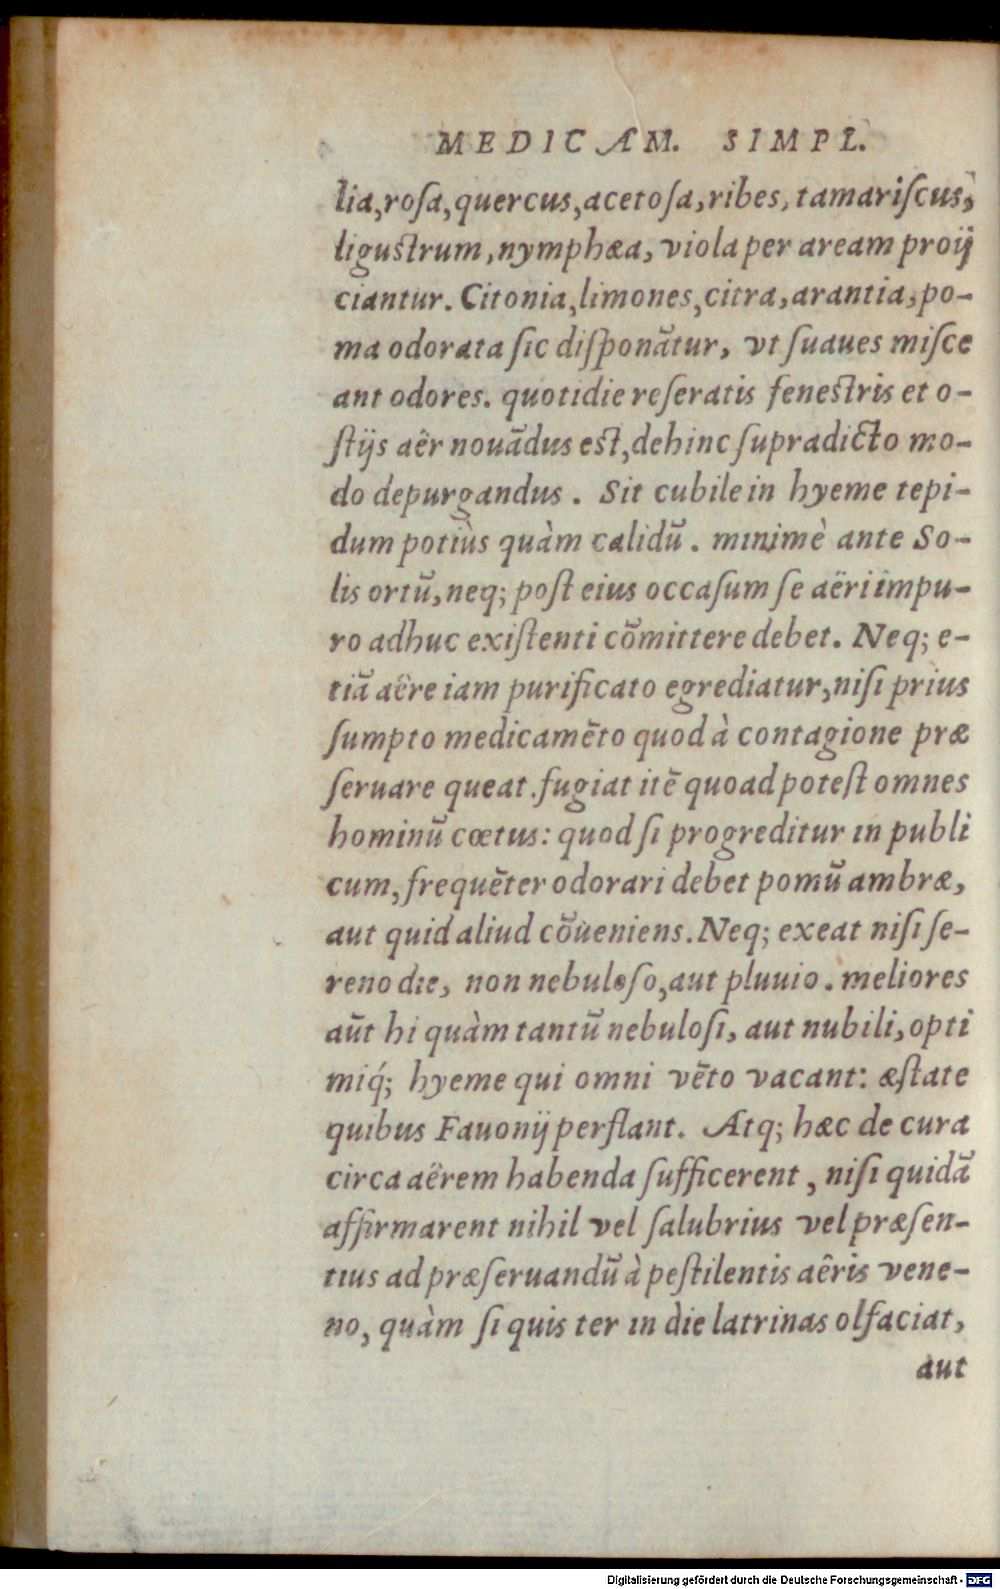 MEDICAM. SIMPL.
lia, rosa, quercus, acetosa, ribes, tamariscus,
ligustrum, nymphæa, viola per aream proij
ciantur. Citonia, limones, citra, arantia, po-
ma odorata sic disponātur, vt suaues misce
ant odores. quotidie reseratis fenestris et o-
stijs aër nouādus est, dehinc supradicto mo-
do depurgandus. Sit cubile in hyeme tepi-
dum potiùs quàm calidū. minimè ante So-
lis ortū, neq; post eius occasum se aëri impu-
ro adhuc existenti cōmittere debet. Neq; e-
tiā aëre iam purificato egrediatur, nisi prius
sumpto medicamēto quod à contagione præ
seruare queat. fugiat itē quoad potest omnes
hominū cœtus: quod si progreditur in publi
cum, frequēter odorari debet pomū ambræ,
aut quid aliud cōueniens. Neq; exeat nisi se-
reno die, non nebuloso, aut pluuio. meliores
aūt hi quàm tantū nebulosi, aut nubili, opti
miq́; hyeme qui omni vēto vacant: æstate
quibus Fauonij perflant. Atq; hæc de cura
circa aërem habenda sufficerent, nisi quidā
affirmarent nihil vel salubrius vel præsen-
tius ad præseruandū à pestilentis aëris vene-
no, quàm si quis ter in die latrinas olfaciat,
aut
Digitalisierung gefördert durch die Deutsche Forschungsgemeinschaft - DFG